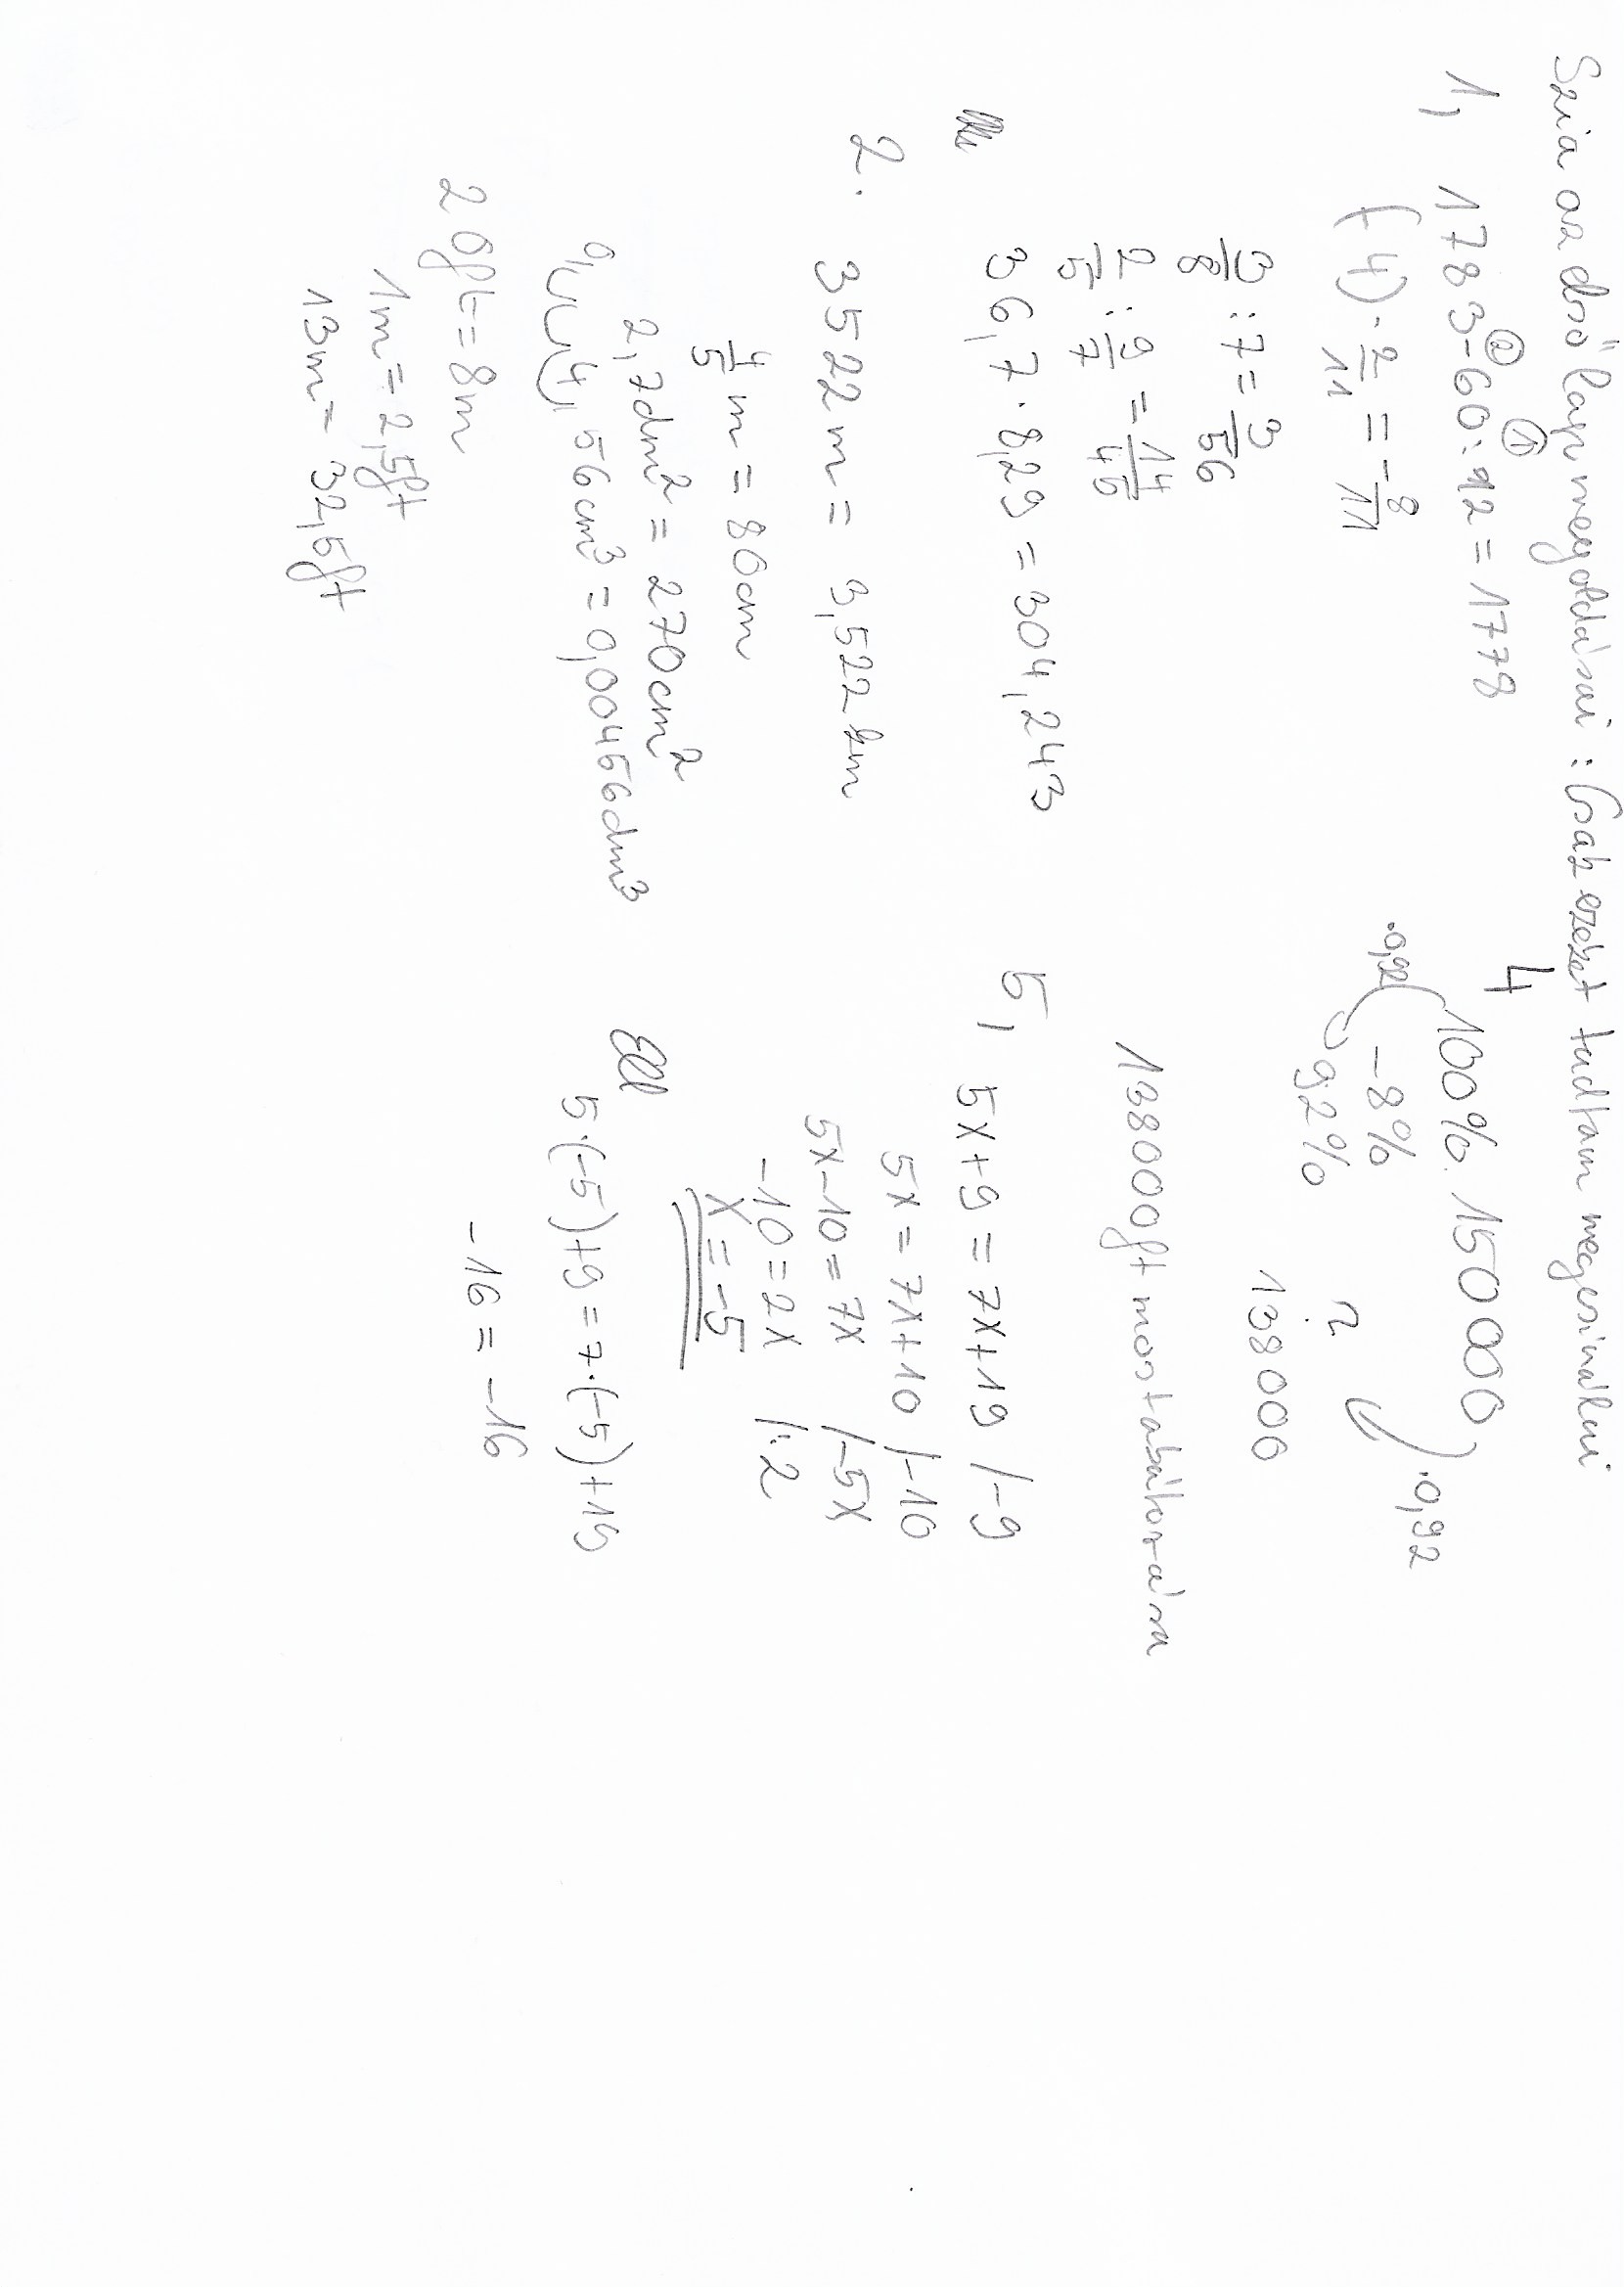 Szia az első lap megoldásai: Csak ezeket tudtam megcsinálni
1, 1783-60:12=1778
② ①
(-4)·2/11=-8/11
3/8:7=3/56
2/5:9/7=14/45
36,7·8,29=304,243
2. 3522m=3,522km
4/5m=80cm
2,7dm²=270cm²
0,004,56cm³=0,00456dm³
20ft=8m
1m=2,5ft
13m=32,5ft
4 100% 150000
·0,92 -8% ? ·0,92
92% 138000
138000ft most a bútor ára
5, 5x+9=7x+19 /-9
5x=7x+10 /-10
5x-10=7x /-5x
-10=2x /:2
x=-5
Ell 5·(-5)+9=7·(-5)+19
-16=-16